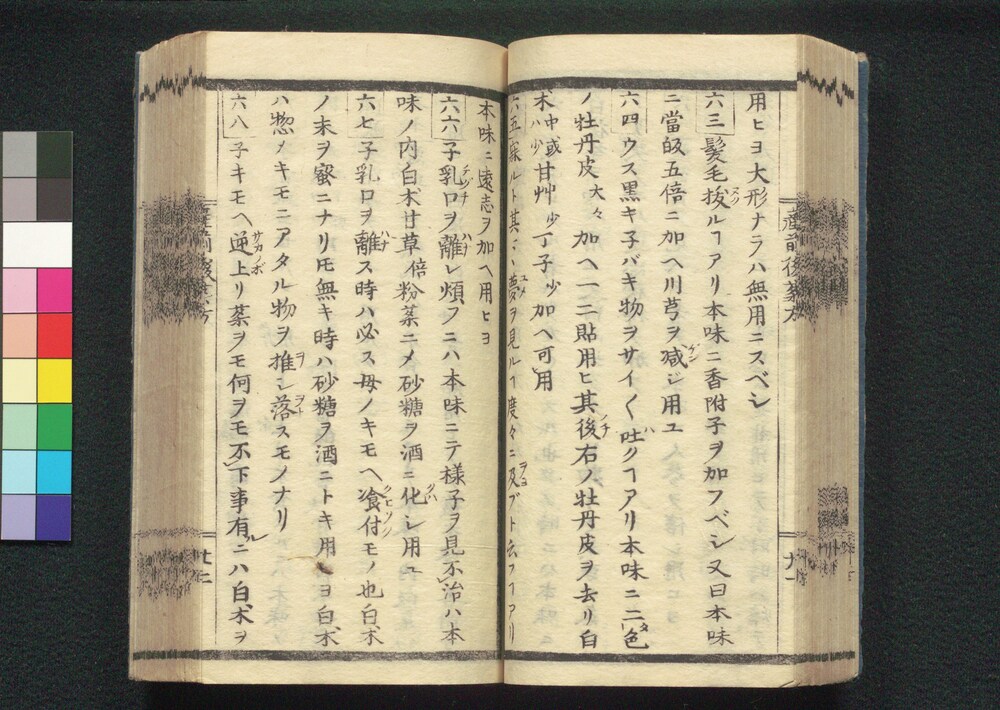 用ヒヨ大形ナラハ無用ニスベシ
六三髪毛抜ルヿアリ本味ニ香附子ヲ加フベシ又曰本味
ニ當皈五倍ニ加ヘ川芎ヲ减ジ用ユ
六四ウス黒キ子バキ物ヲサイ〱吐クヿアリ本味ニ二色
ノ牡丹皮大々加ヘ一二貼用ヒ其後右ノ牡丹皮ヲ去リ白
木中或ハ少甘艸少丁子少加ヘ可用
六五寐ルト其ニ夢ヲ見ルヿ度々ニ及ブト云フヿアリ
本味ニ遠志ヲ加ヘ用ヒヨ
六六子乳口ヲ離レ煩フニハ本味ニテ様子ヲ見不治ハ本
味ノ内白朮甘草倍粉薬ニメ砂糖ヲ酒ニ化シ用ユ
六七子乳口ヲ離ス時ハ必ス母ノキモヘ飡付モノ也白朮
ノ末ヲ蜜ニナリ𪜈無キ時ハ砂糖ヲ酒ニトキ用ヒヨ白朮
ハ惣メキモニアタル物ヲ推シ落スモノナリ
六八子キモヘ逆上リ薬ヲモ何ヲモ不下事有ルニハ白朮ヲ